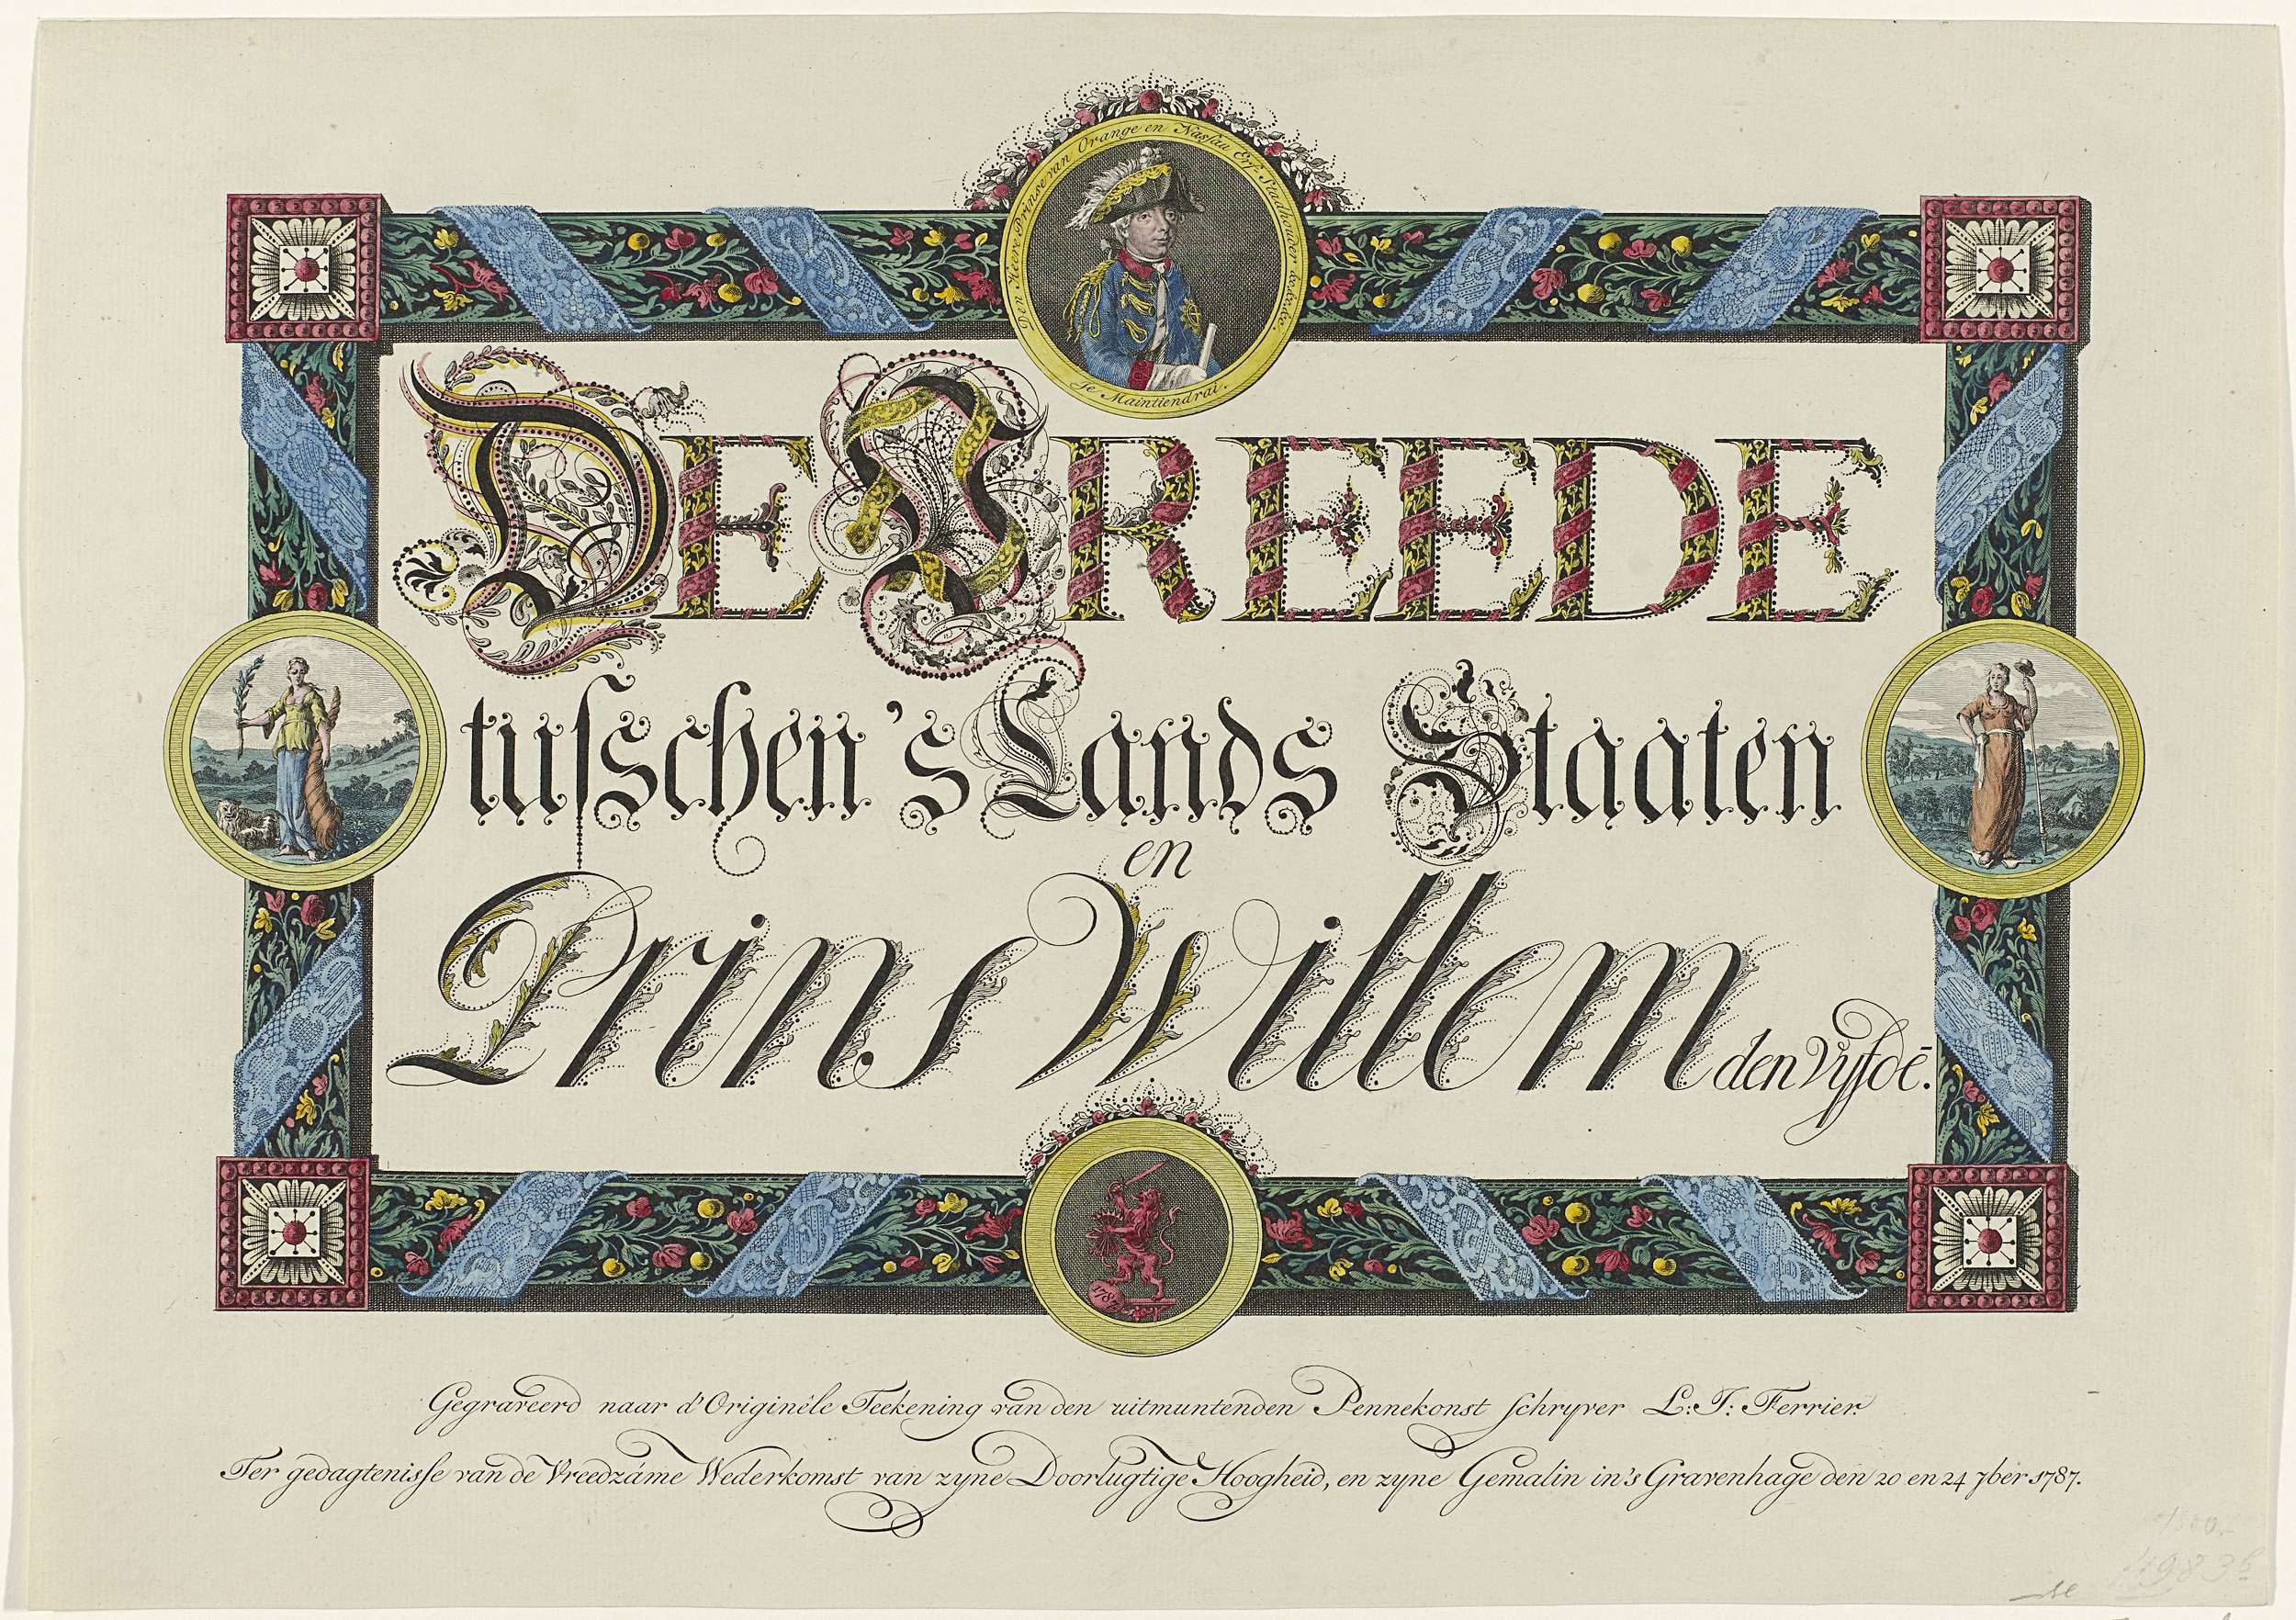 Den Heere Prinse van Orange en Nassau Erf-Stadhouder &c. &c. &c.
Je Maintiendrai.
DE VREEDE
tusschen 's Lands Staaten
en
Prins Willem den Vyfde.
1787
Gegraveerd naar d'Originéle Teekening van den uitmuntenden Pennekonst schryver L: J: Ferrier.
Ter gedagtenisse van de Vreedzáme Wederkomst van zyne Doorlugtige Hoogheid, en zyne Gemalin in 's Gravenhage den 20 en 24 7ber 1787.